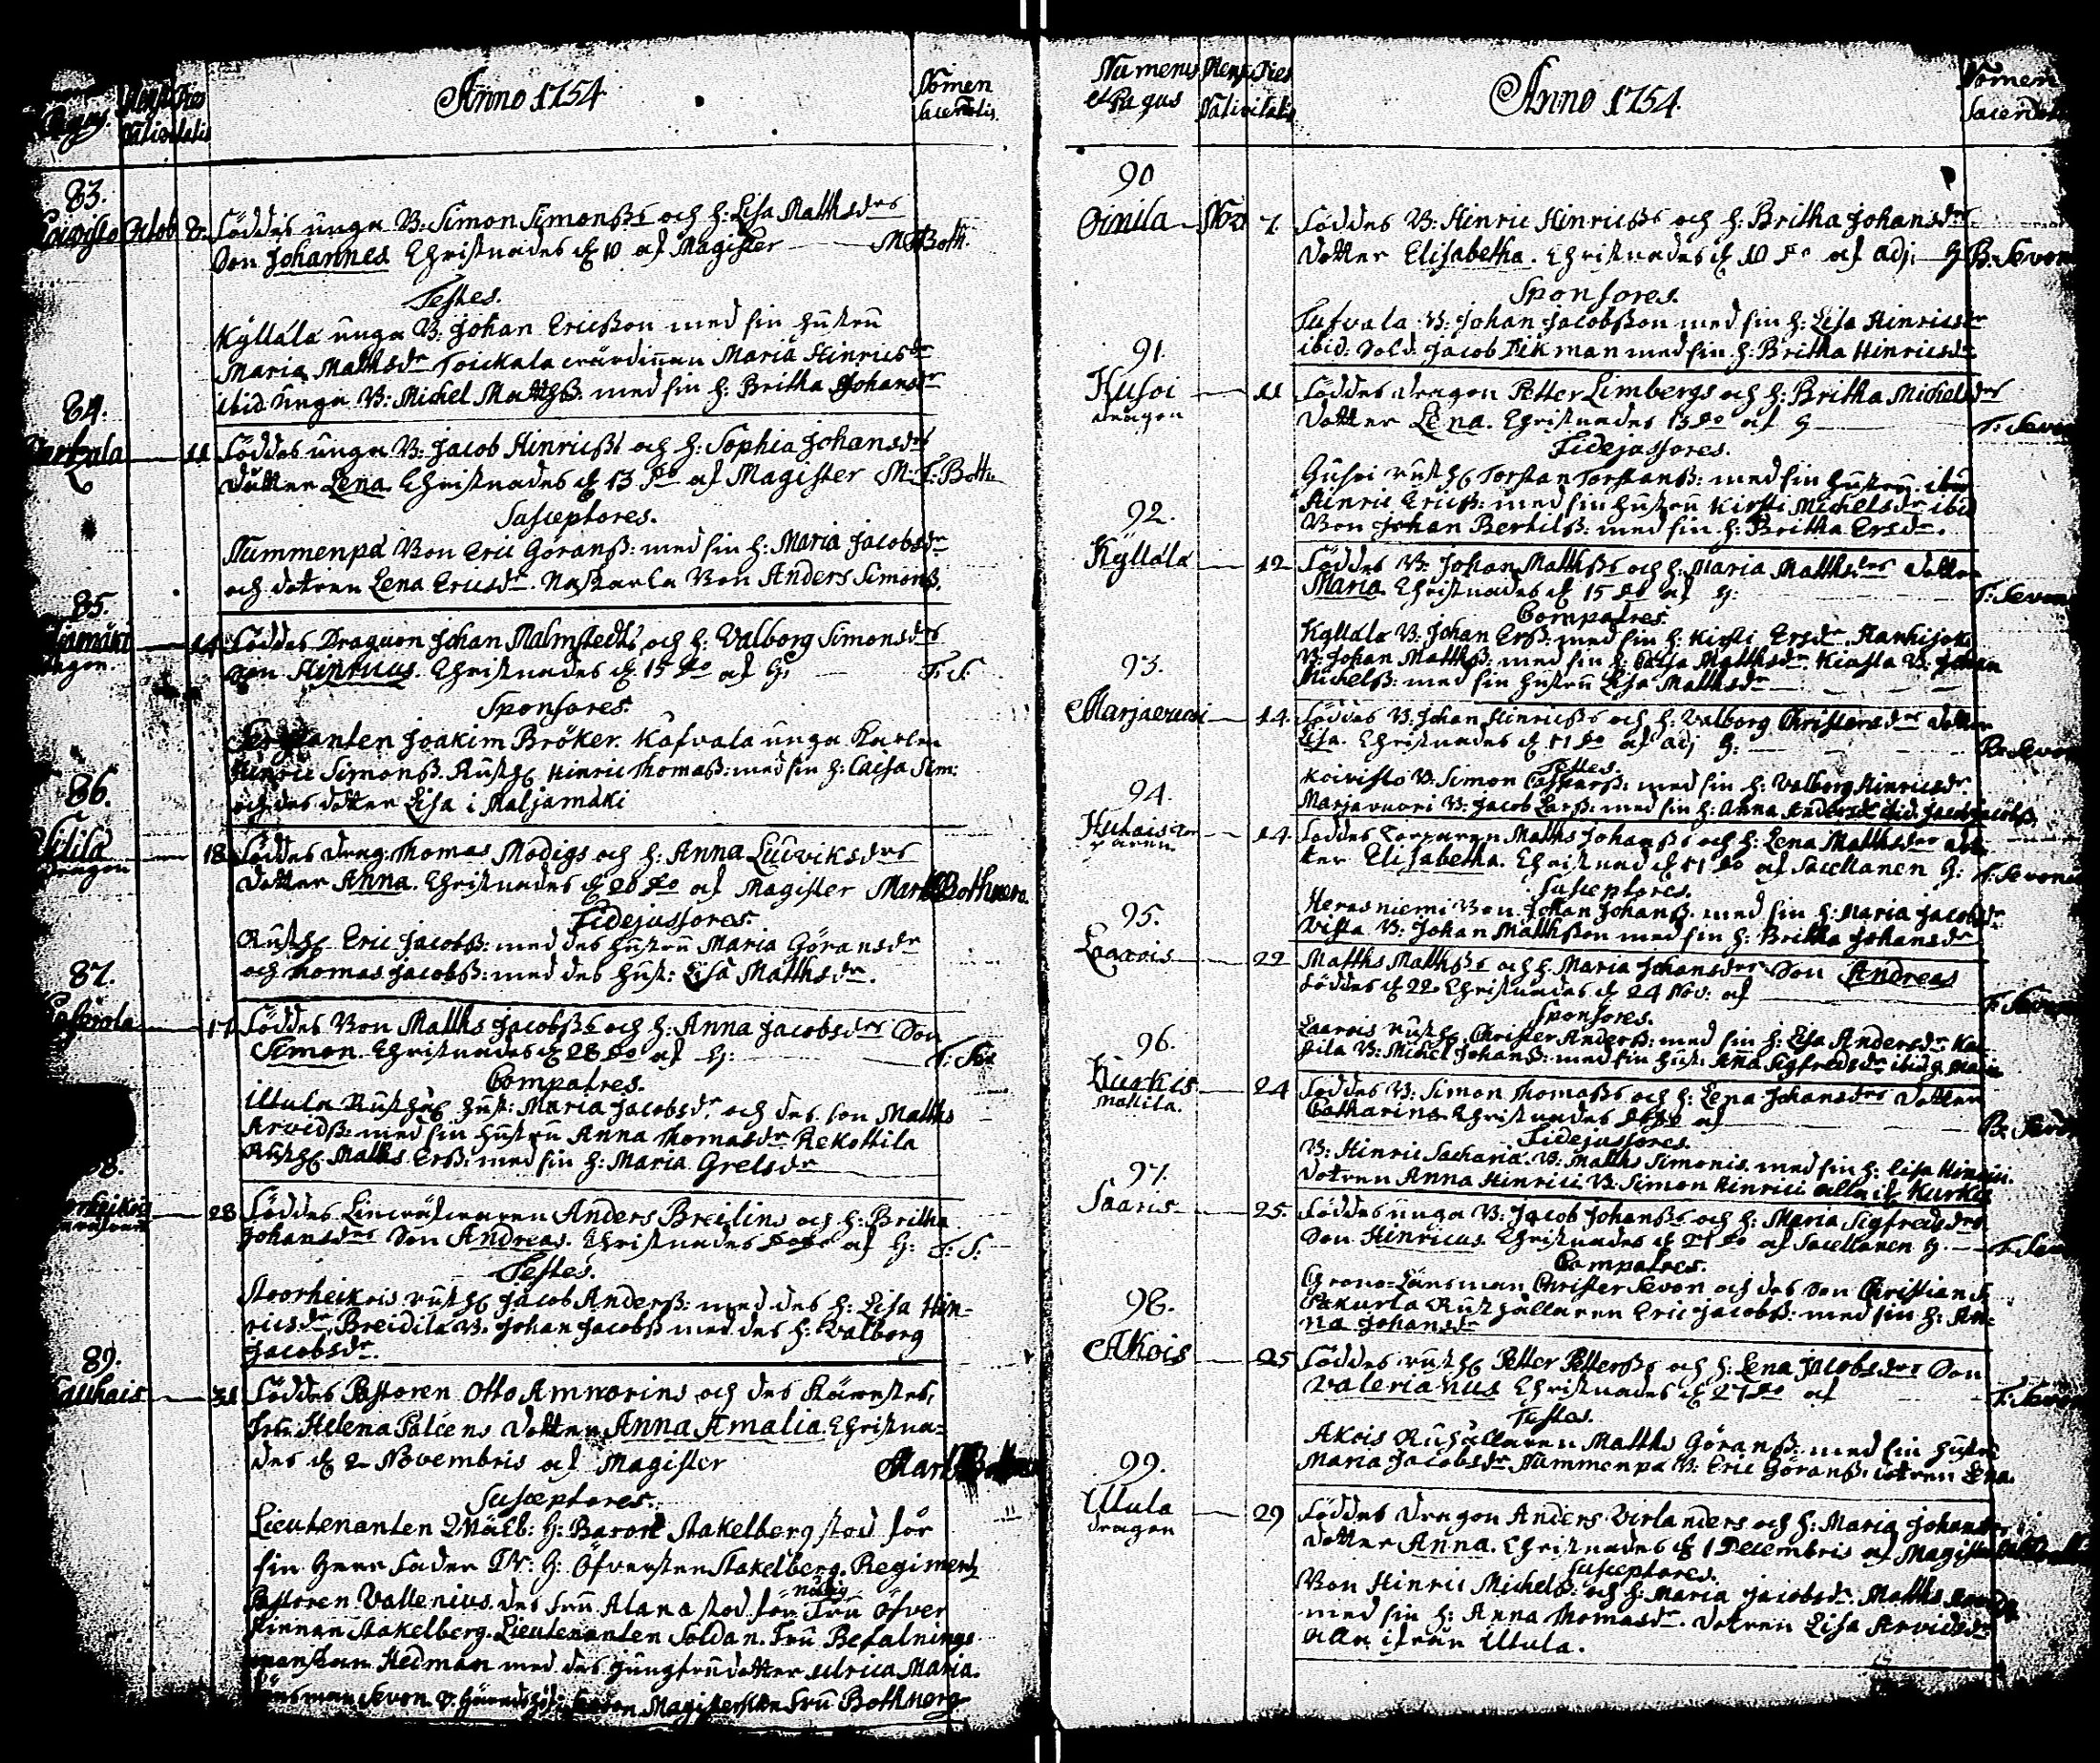 Pagus. Mens. Dies
Nativitatis
Anno 1754
Nomen
Sacerdotis.
83.
Koivisto Octob 8. Föddes unga B: Simon Simonßs och h: Lisa Mattsdrs
Son Johannes Christnades d 10 af Magister M. Both.
Testes.
Kyllälä unga B: Johan Ericßon med sin hustru
Maria Mattsdr Toickala wärdinnan Maria Hinricsdr
ibid unga B: Michel Matthß. med sin h: Britha Johansdr
84.
11 Föddes unga B: Jacob Hinricßs och h: Sophia Johansdrs
dotter Lena Christnades d 13 do af Magister M: F: Both.
Susceptores.
Nummenpä Bon Eric Göranß: med sin h: Maria Jacobsdr
och dotren Lena Ericsdr. Bon Anders Simonß.
85.
14 Föddes Dragon Johan Malmstedts och h: Valborg Simonsdrs
son Hinricus. Christnades d. 15 do af H: F: S:
Sponsores.
Sergeanten Joakim Bröker. Kafvala unga Karlen
Hinric Simonß. Rusth Hinric Thomaß: med sin h: Caisa Sim:
och des dotter Lisa i Maljamäki
86.
dragon 18 Föddes drag: Thomas Modigs och h: Anna Ludviksdrs
dotter Anna. Christnades d 20 do af Magister Mart Bothnera.
Fidejussores.
Rusth Eric Jacobß: med des hustru Maria Göransdr
och Thomas Jacobß: med des hust: Lisa Matthsdr.
87.
Föddes Bon Matths Jacobßs och h: Anna Jacobsdrs Son
Simon. Christnades d 28 do af H: F: S
Compatres.
Uttula Rusth hust: Maria Jacobsdr och des son Matths
Arvidß: med sin hustru Anna Thomasdr Rekottila
Rusth Matths Erß: med sin h: Maria Grelsdr
88.
28 Föddes Anders Breilins och h: Britha
Johansdrs Son Andreas. Christnades do af H: F: S:
Testes.
Stoorheikois rusth Jacob Anderß: med des h: Lisa Hin-
ricsdr, Breidila B. Johan Jacobß med des h: Valborg
Jacobsdr.
89.
31 Föddes Pastoren Otto Amnorins och des Käreste
Fru Helena Paleens dotter Anna Amalia. Christna-
des d 2 Novembris af Magister
Susceptores.
Lieutenanten Välb: H: Baron Stakelberg stod för
sin Herr Fader H: Öfversten Stakelberg. Regiments
Pastoren Vallenius. des fru Alana stod för nådig Fru Öfver
stinnan Stakelberg. Lieutenanten Soldan. Fru Befalnings
manskan Hedman med des Jungfrudotter Ulrica Maria.
Länsman Sevon Magisterskan Fru Bothnerg
Numerus Mens. Dies
et Pagus Nativitatis
Anno 1754.
Nomen
Sacerdot
90
Oinila Nov 7. Föddes B: Hinric Hinricßs och h: Britha Johansdrs
dotter Elisabetha. Christnades d 10 do af adj: H B. Sevon
Sponsores.
Tafvala B: Johan Jacobßon med sin h: Lisa Hinricsdr
ibid: Sold. Jacob Dikman med sin h: Britha Hinricsdr
91.
Husoi 11 Föddes dragon Petter Limbergs och h: Britha Michelsdrs
dragon dotter Lena. Christnades 13 do af H F: Sevon
Fidejussores.
Husoi rusth Torstan Torstanß: med sin hustru. ibid
Hinric Ericß: med sin hustru Kirsti Michelsdr ibid
Bon Johan Bertilß: med sin h: Britha Ersdr.
92.
Kyllälä 12 Föddes B: Johan Matthßs och h: Maria Matthsdrs dotter
Maria. Christnades d 15 do af H: F: Sevon
Compatres.
Kyllälä B: Johan Erß: med sin h: Kirsti Ersdr. Hanhijoki
B: Johan Matthß: med sin h: Caisa Matthsdr. Kiasla B: Johan
Michelß: med sin hustru Lisa Matthsdr
93.
Marjavuori 14 Föddes B: Johan Hinricßs och h: Valborg Christersdrs dotter
Lisa. Christnades d 17 do af adj H: B: Sevon
Testes.
Koivisto B: Simon Casparß: med sin h: Valborg Hinricsdr.
Marjavuori B: Jacob Larß: med sin h: Anna Andersdr ibid. Jacob Jacobß
94.
14. Föddes torparen Matths Johanßs och h: Lena Matthsdrs dot-
ter Elisabetha. Christnad d 17 do af Sacellanen H: F: Sevon
Susceptores.
Herasniemi Bon Johan Johanß. med sin h: Maria Jacobsdr
Vista B: Johan Matthßon med sin h: Britha Johansdr
95.
Laarois 22 Matths Matthßs och h: Maria Johansdrs Son Andreas
föddes d 22 Christnades d 24 Nov: af F: Sevon
Sponsores.
Laarois rusth. Christer Anderß: med sin h: Lisa Andersdr. Kat-
tila B: Michel Johanß: med sin hust: Ana Sigfredsdr ibid
96.
Kurkis 24 Föddes B: Simon Thomaßs och h: Lena Johansdrs dotter
Mattila. Catharina Christnades do af B: Sevon
Fidejussores.
B: Hinric Sacharia. B: Matths Simonis. med sin h: Lisa Hinrici.
dotren Anna Hinrici B: Simon Hinrici alla if. Kurkis
97.
Saaris 25. Föddes unga B: Jacob Johanßs och h: Maria Sigfredsdrs
Son Hinricus. Christnades d 27 do af Sacellanen H F. Sevon
Compatres.
Crono-Länsman Christer Sevon och des Son Christian
Pakurla Rusthållaren Eric Jacobß. med sin h: An-
na Johansdr
98.
Akois 25 Föddes rusth Petter Petterßs och h: Lena Jacobsdrs Son
Valerianus Christnades d 27 do af F: Sevon
Testes.
Akois Rusthållaren Matths Göranß: med sin hustru
Maria Jacobsdr. Nummenpä B: Eric Göranß: dotren Lena.
99.
Uttula 29 Föddes dragon Anders Virlanders och h: Maria Johansdrs
dragon dotter Anna. Christnades d 1 Decembris af Magister
Susceptores.
Bon Hinric Michelß: och h: Maria Jacobsdr. Matths
med sin h: Anna Thomasdr. dotren Lisa Arvidsdr
alla ifrån Uttula.